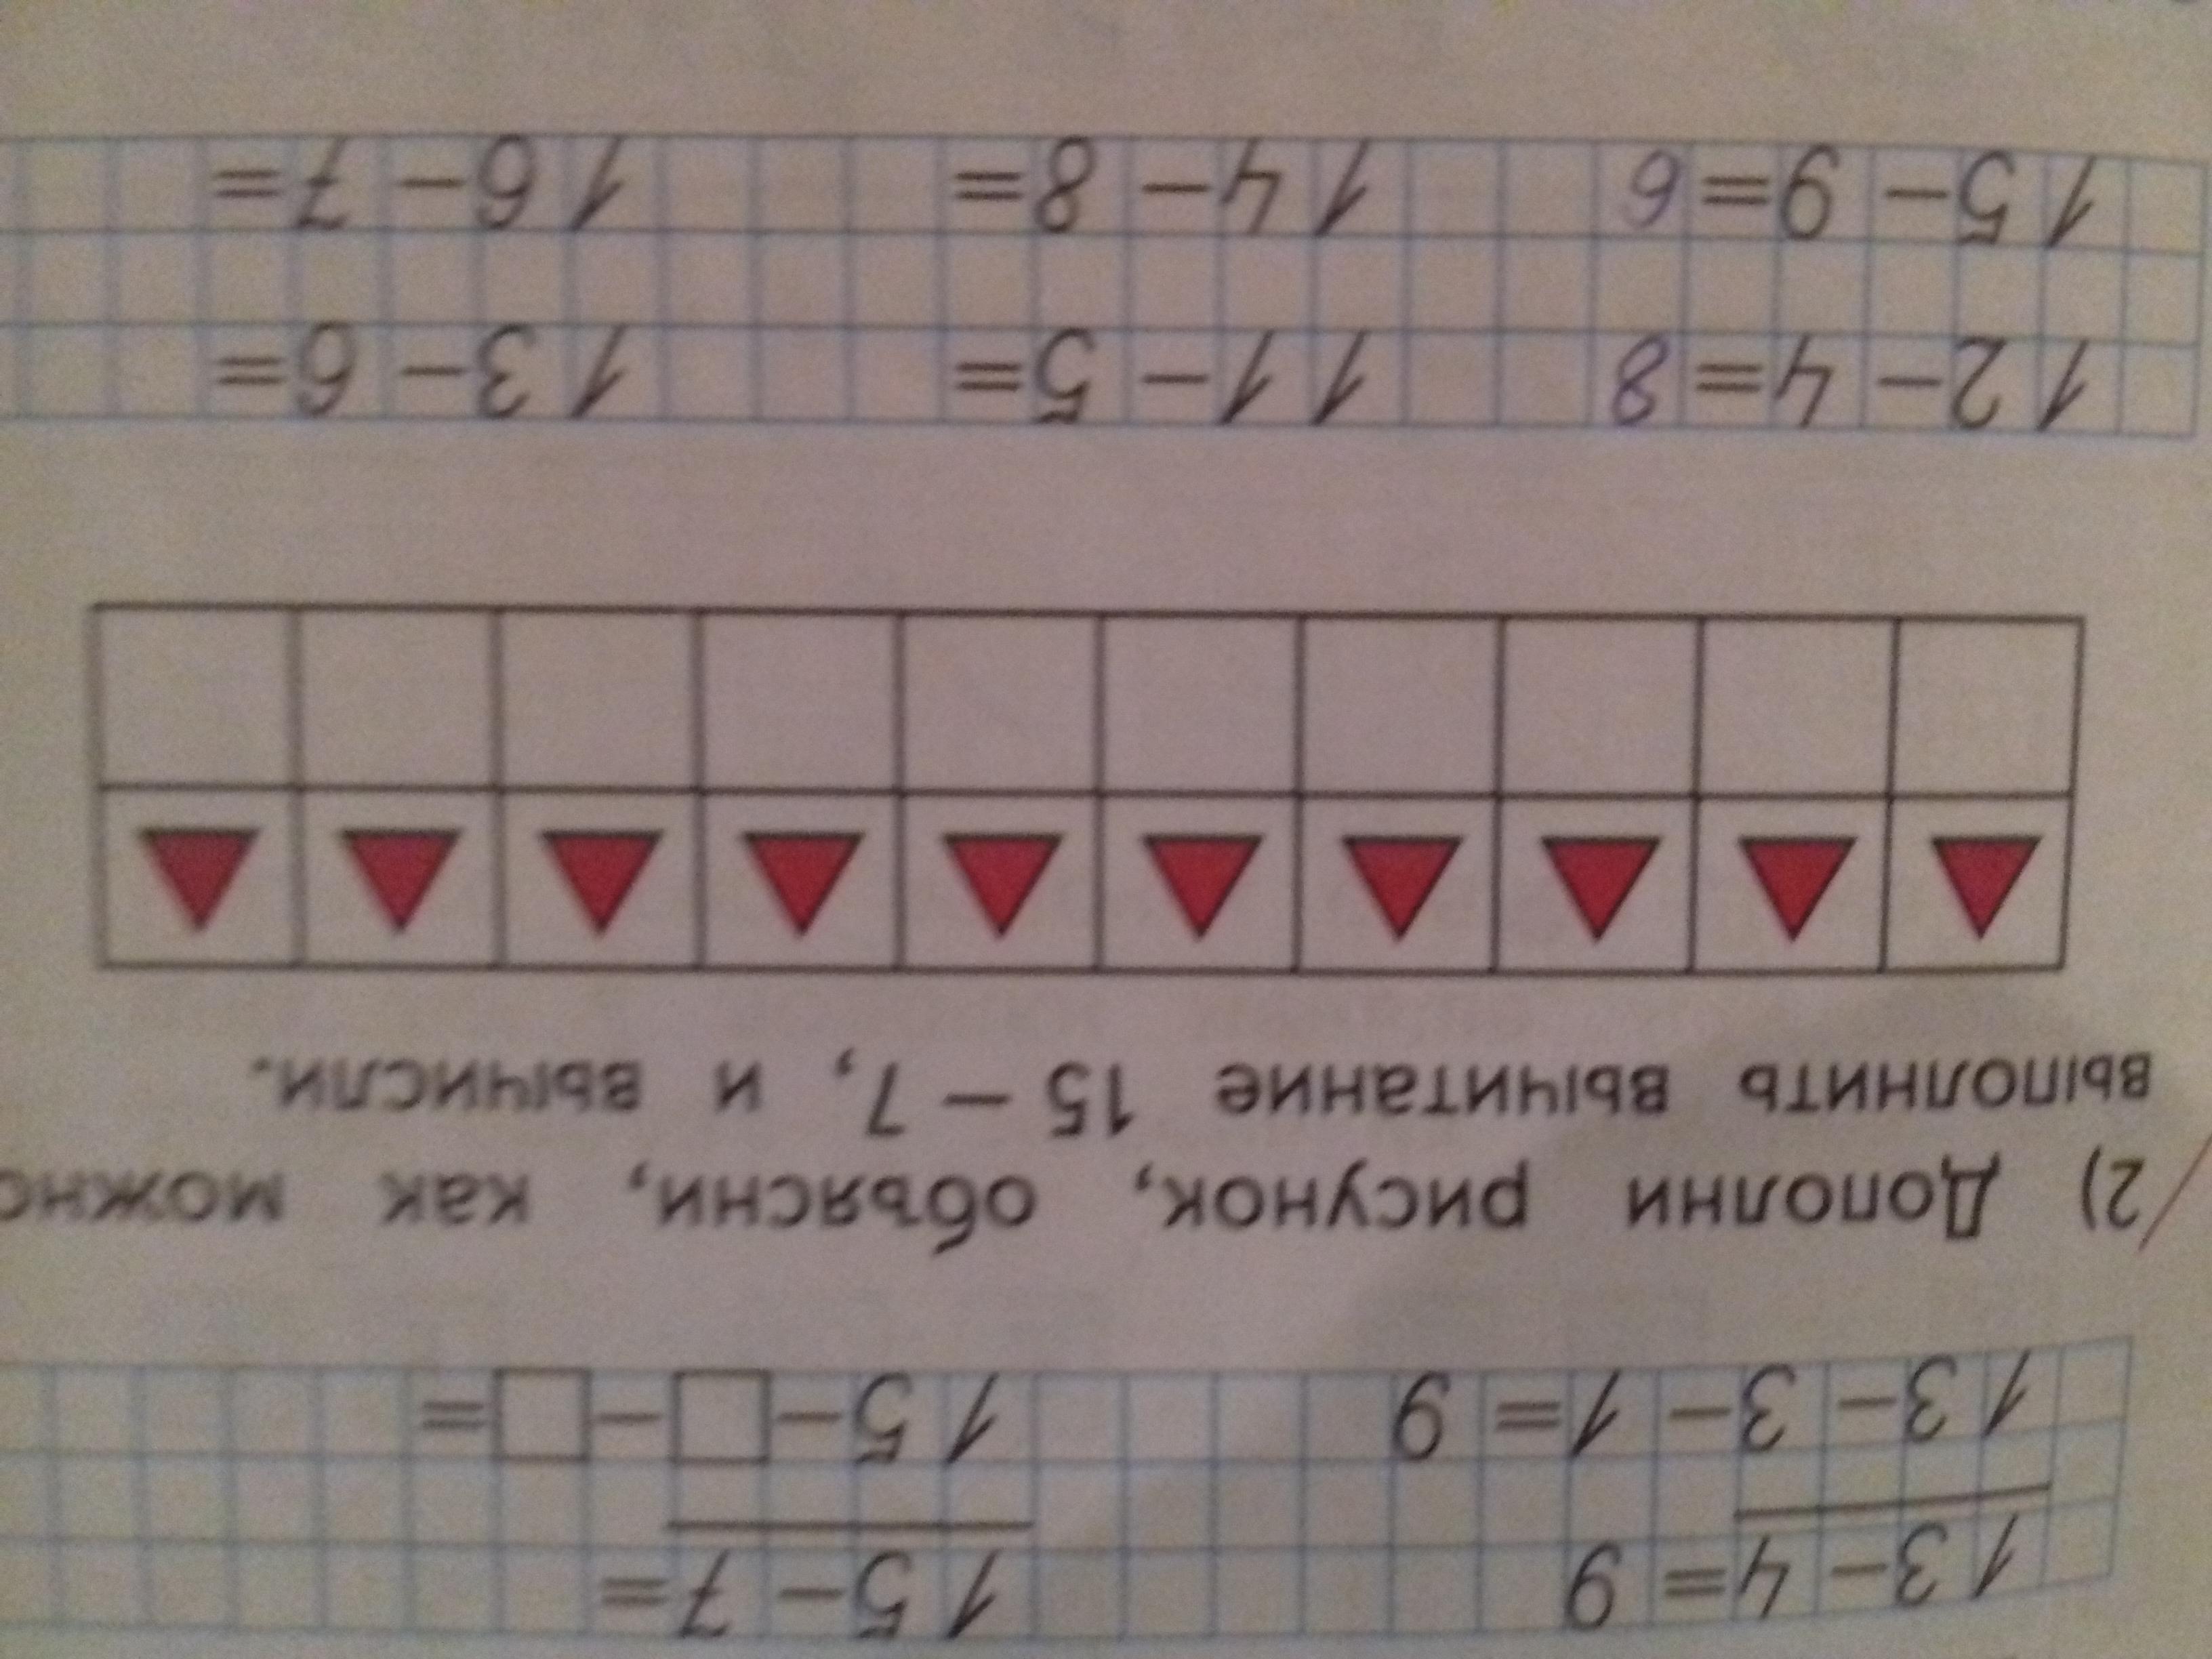 13-4=9 15-7=
13-3-1=9 15-□-□=
2) Дополни рисунок, объясни, как можно
выполнить вычитание 15 – 7, и вычисли.
12-4=8 11-5= 13-6=
15-9=6 14-8= 16-7=